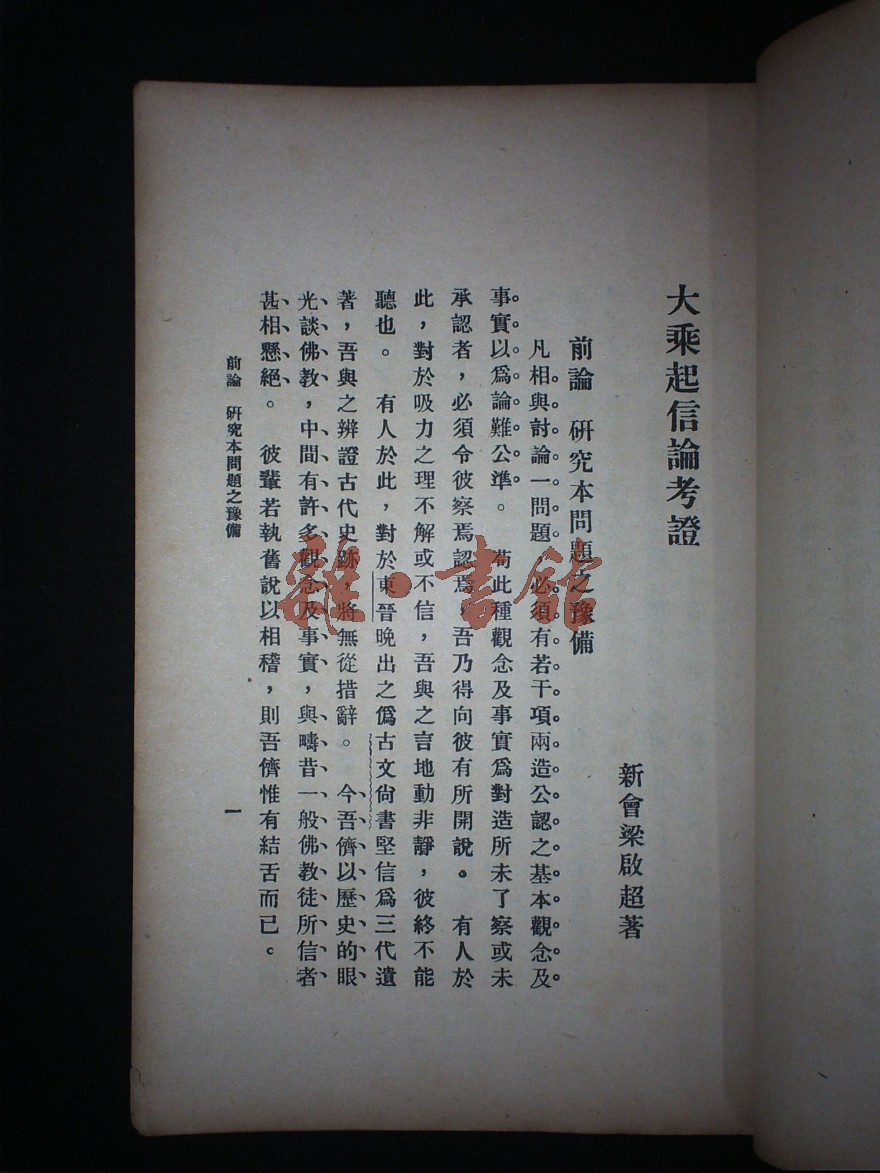 大乘起信論考證
新會梁啟超著
前論　研究本問題之豫備
凡相與討論一問題，必須有若干項兩造公認之基本觀念及
事實以爲論難公準。苟此種觀念及事實爲對造所未了察或未
承認者，必須令彼察焉認焉，吾乃得向彼有所開說。有人於
此，對於吸力之理不解或不信，吾與之言地動非靜，彼終不能
聽也。有人於此，對於東晉晚出之僞古文尙書堅信爲三代遺
著，吾與之辨證古代史跡，將無從措辭。今吾儕以歷史的眼
光談佛教，中間有許多觀念及事實，與疇昔一般佛教徒所信者
甚相懸絕。彼輩若執舊說以相稽，則吾儕惟有結舌而已。
前論　研究本問題之豫備
一
雜·書館